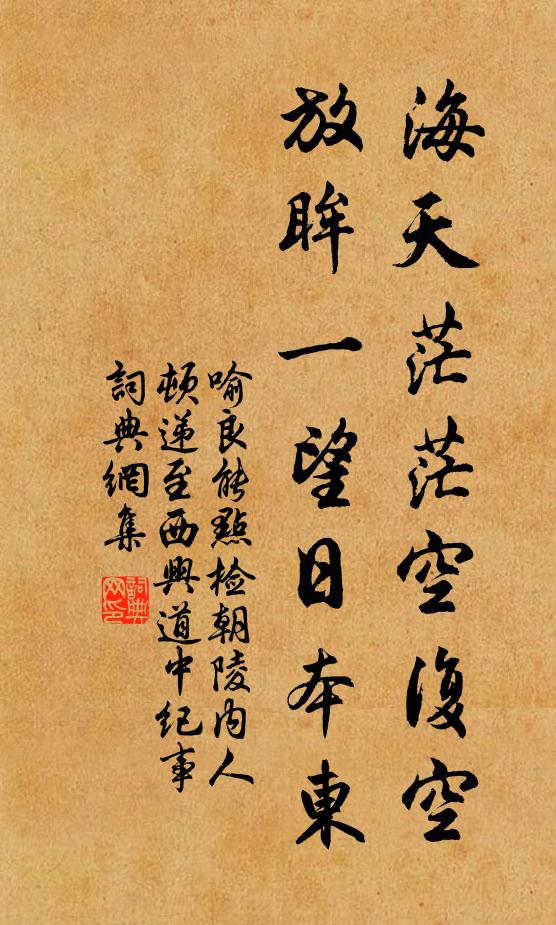 海天茫茫空復空
放眸一望日本東
喻良能點檢朝陵內人
頓遞至西興道中紀事
詞典網集
詞典
网印